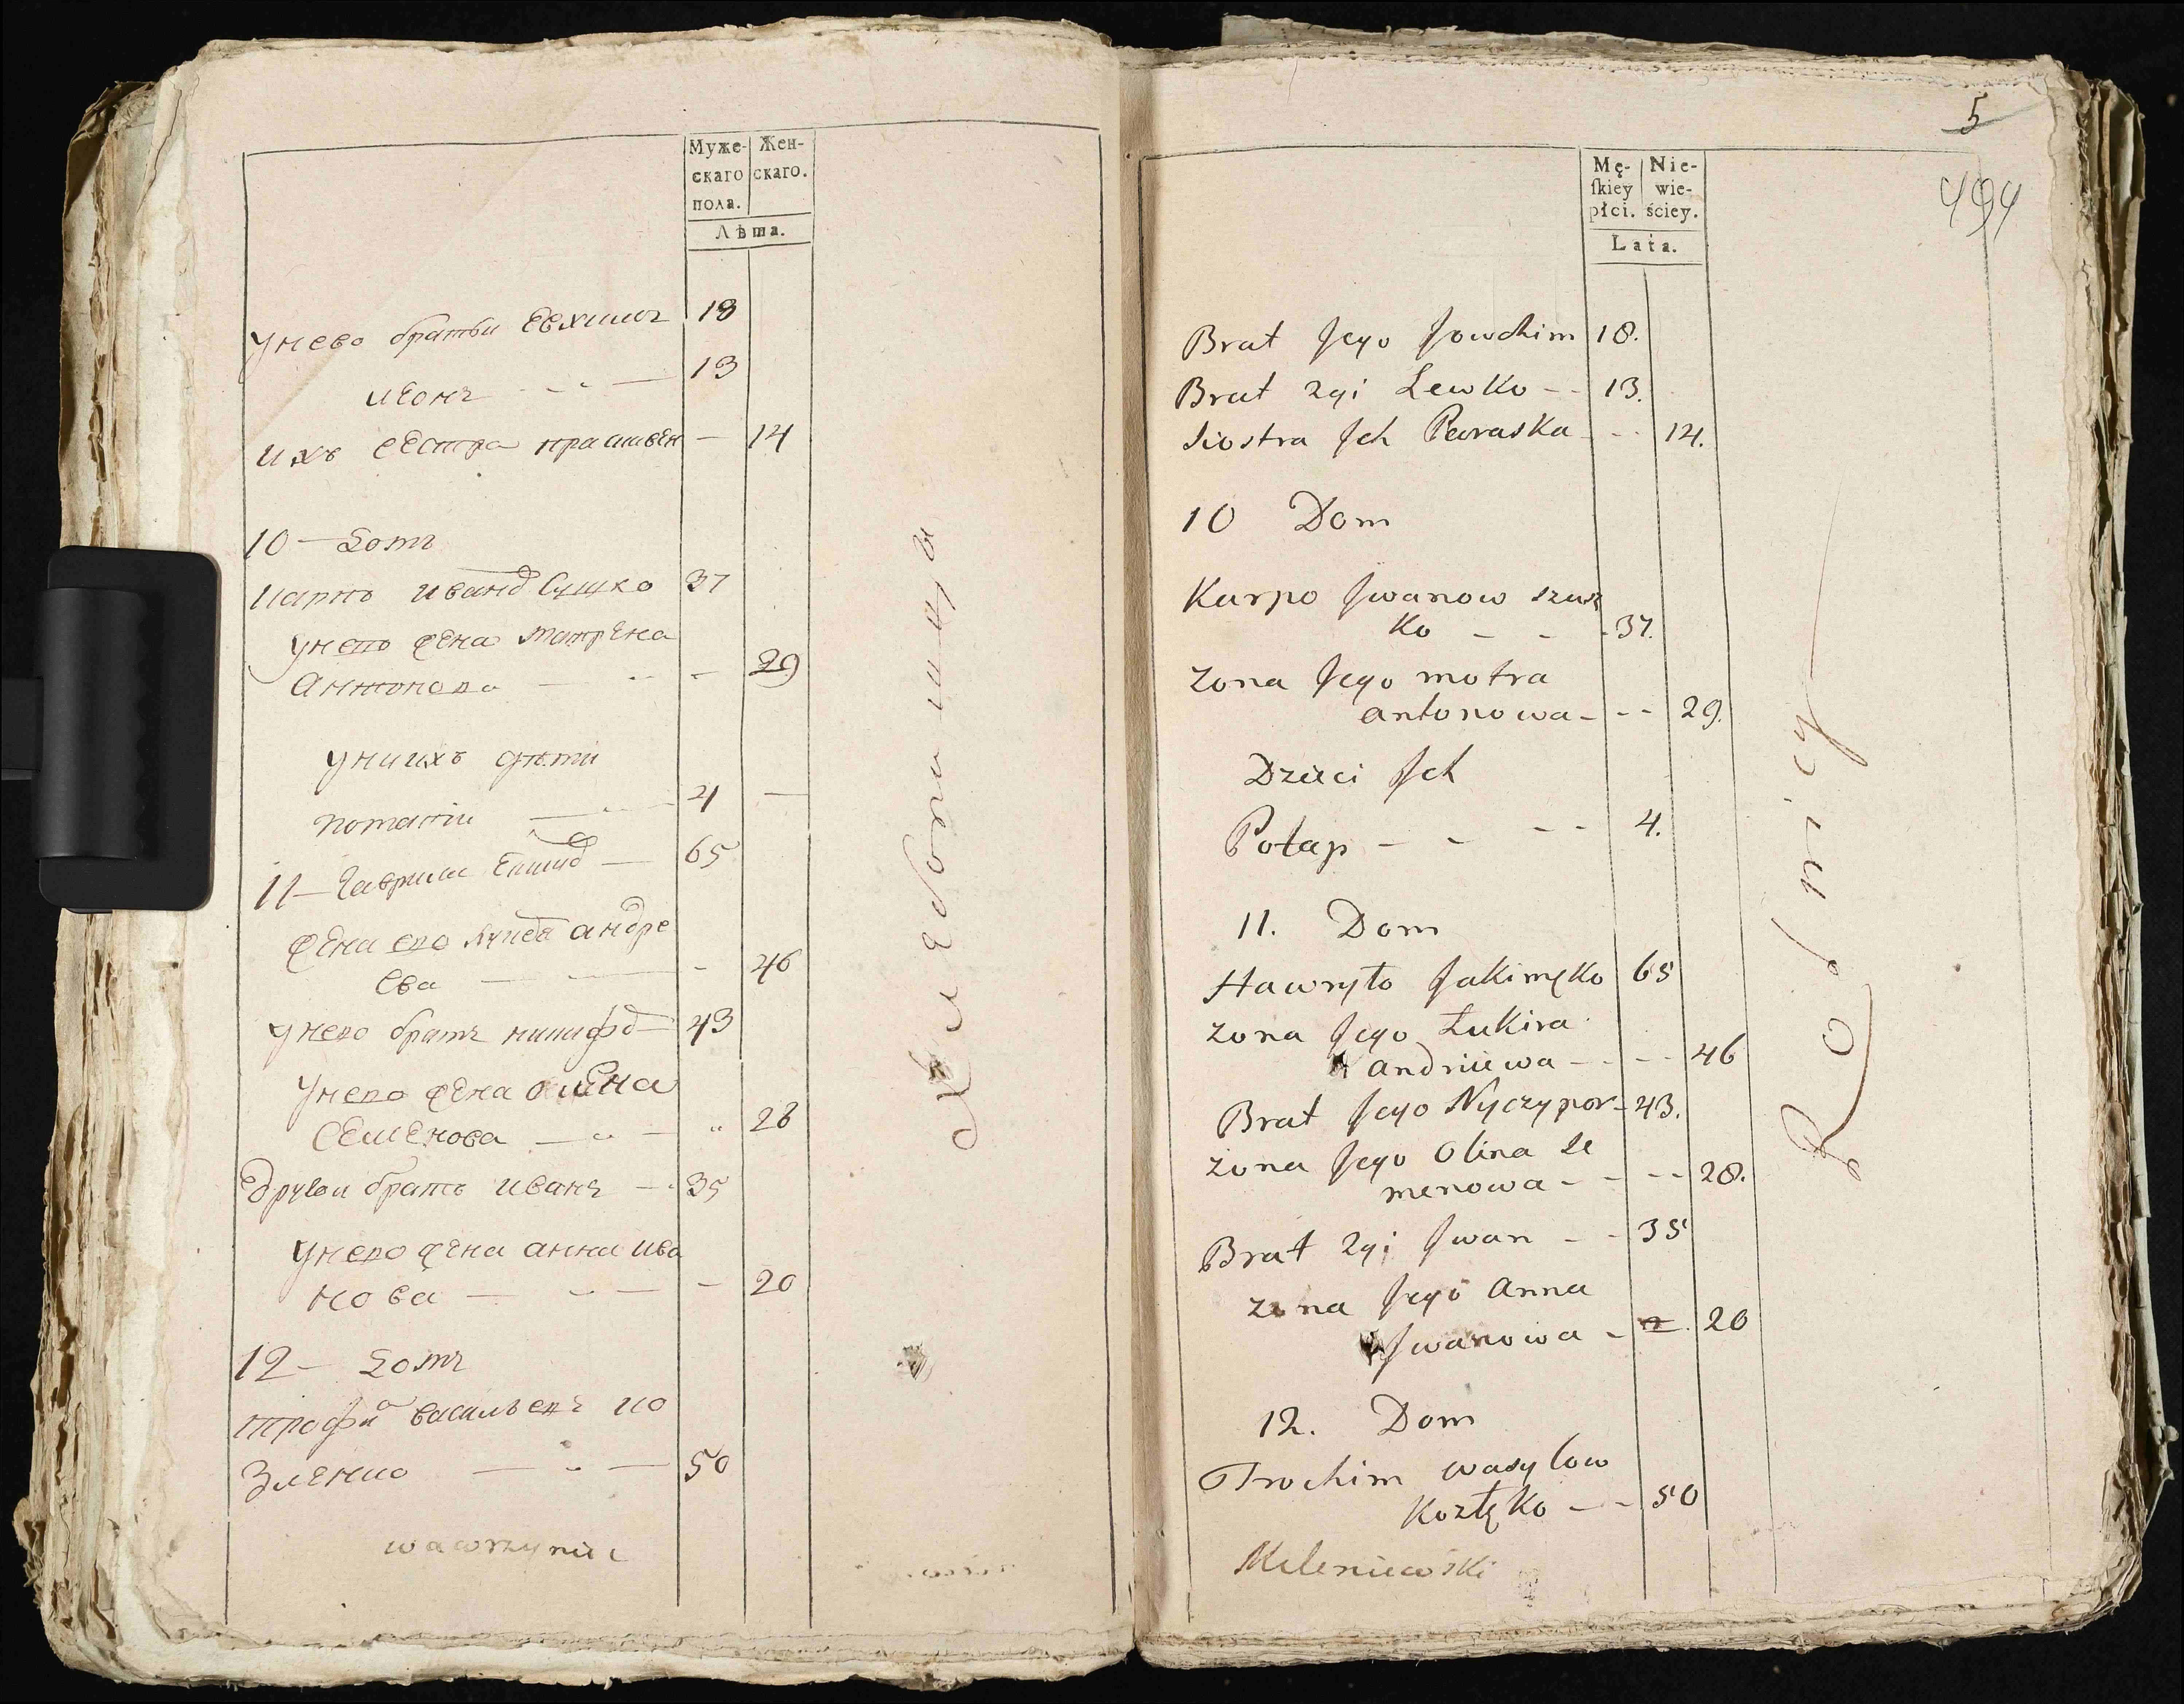 Муже-
скаго
пола.
Жен-
скаго.
Лѣта.
унево братьи Евхимъ 18
Леонъ 13
ихъ сестра прасковея — 14
10 — Домъ
Карпъ Иванов Сушко 37
унего жена матрена
Антонова — 29
уних дѣти
потапій 4 —
11 — Гаврило Еким 65
жена его Лукер андре
ева — 46
унего братъ никифор 43
Унего жена олена
Семенова — 28
другой братъ иванъ — 35
унего жена анна ива
нова — 20
12 — Домъ
трофим васильевъ ко
зленко — 50
wawrzyniec
Хлебопашцы
5
494
Mę-
ſkiey
płci.
Nie-
wie-
ściey.
Lata.
Brat Jego Jowchim 18.
Brat 2gi Lewko - - 13.
Siostra Jch Paraska - - 14.
10 Dom
Karpo Jwanow szusz
ko - - - 37.
zona Jego motra
antonowa - - - 29.
Dzieci Jch
Potap - - - - 4.
11. Dom
Hawryło Jakimęko 65
zona Jego Łukira
andriiewa - - - 46
Brat Jego Nyczypor - 43.
zona Jego Olina Se
menowa - - - - 28.
Brat 2gi Jwan - - 35
zona Jego Anna
Jwanowa - 20
12. Dom
Trochim wasylow
Kozłęko - - 50
Meleniewski
Rolnicy